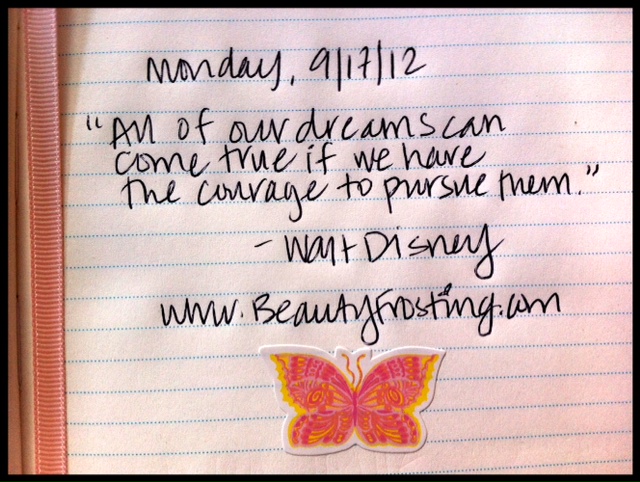 monday, 9/17/12
"All of our dreams can
come true if we have
the courage to pursue them."
- Walt Disney
www.BeautyFrosting.com